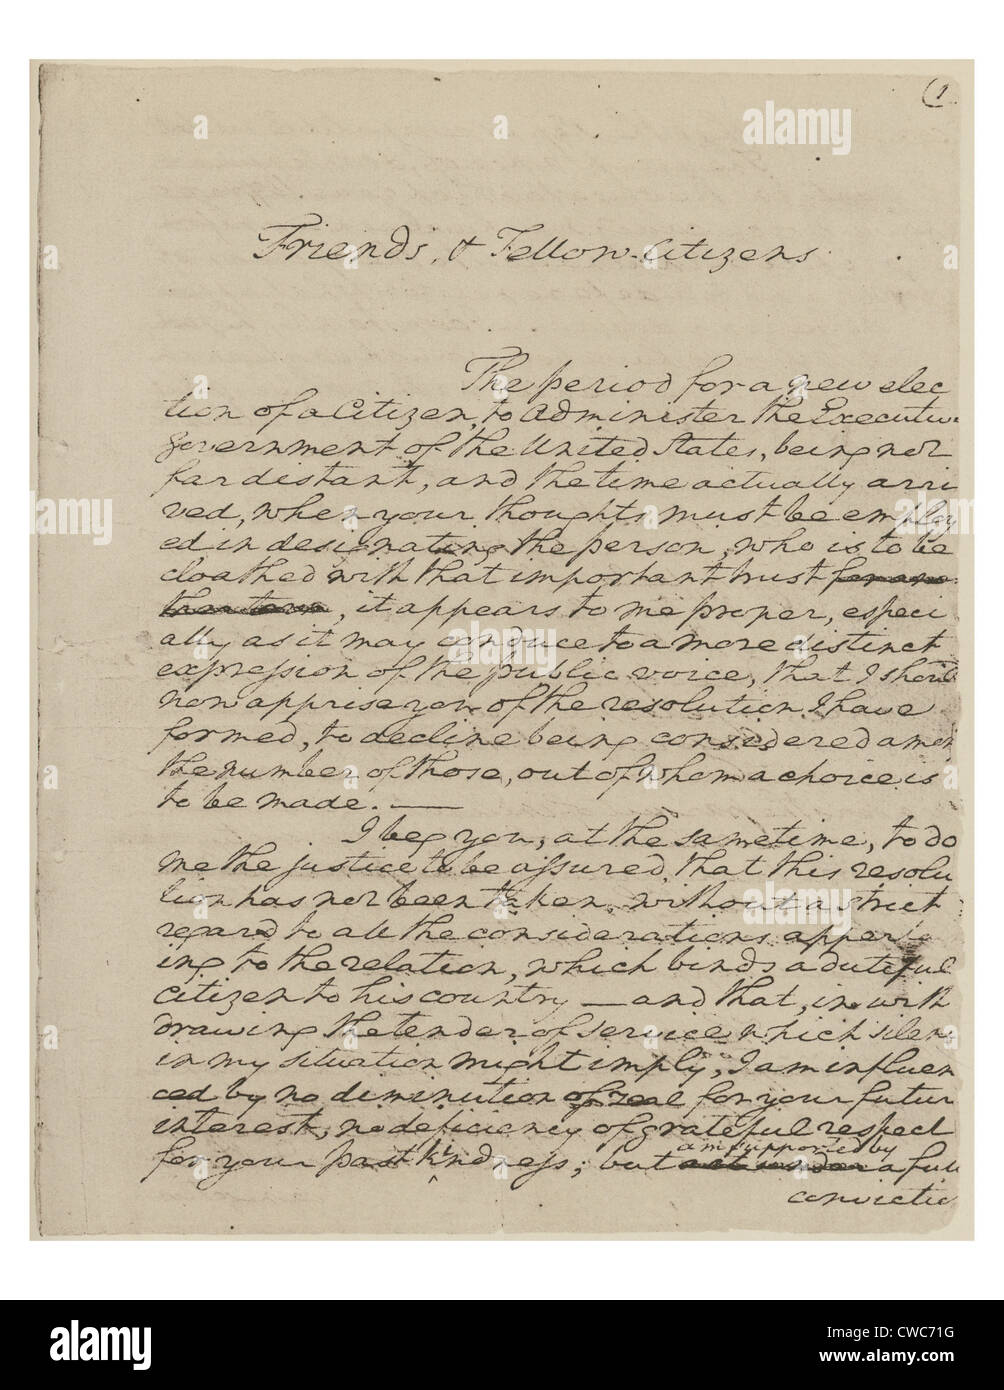 (1
Friends, & Fellow-Citizens
The period for a new elec
tion of a Citizen, to Administer the Executive
government of the United States, being not
far distant, and the time actually arri
ved, when your thoughts must be employ
ed in designating the person, who is to be
cloathed with that important trust for ano
ther term, it appears to me proper, especi
ally as it may conduce to a more distinct
expression of the public voice, that I should
now apprise you of the resolution I have
formed, to decline being considered among
the number of those, out of whom a choice is
to be made. —
I beg you, at the sametime, to do
me the justice to be assured, that this resolu
tion has not been taken, without a strict
regard to all the considerations appert
ing to the relation, which binds a dutiful
citizen to his country — and that, in with
drawing the tender of service which silence
in my situation might imply, I am influen
ced by no diminution of zeal for your future
interest, no deficiency of grateful respect
am supported by
for your past kindness; but act under a full
convictio
alamy
Image ID: CWC71G
www.alamy.com